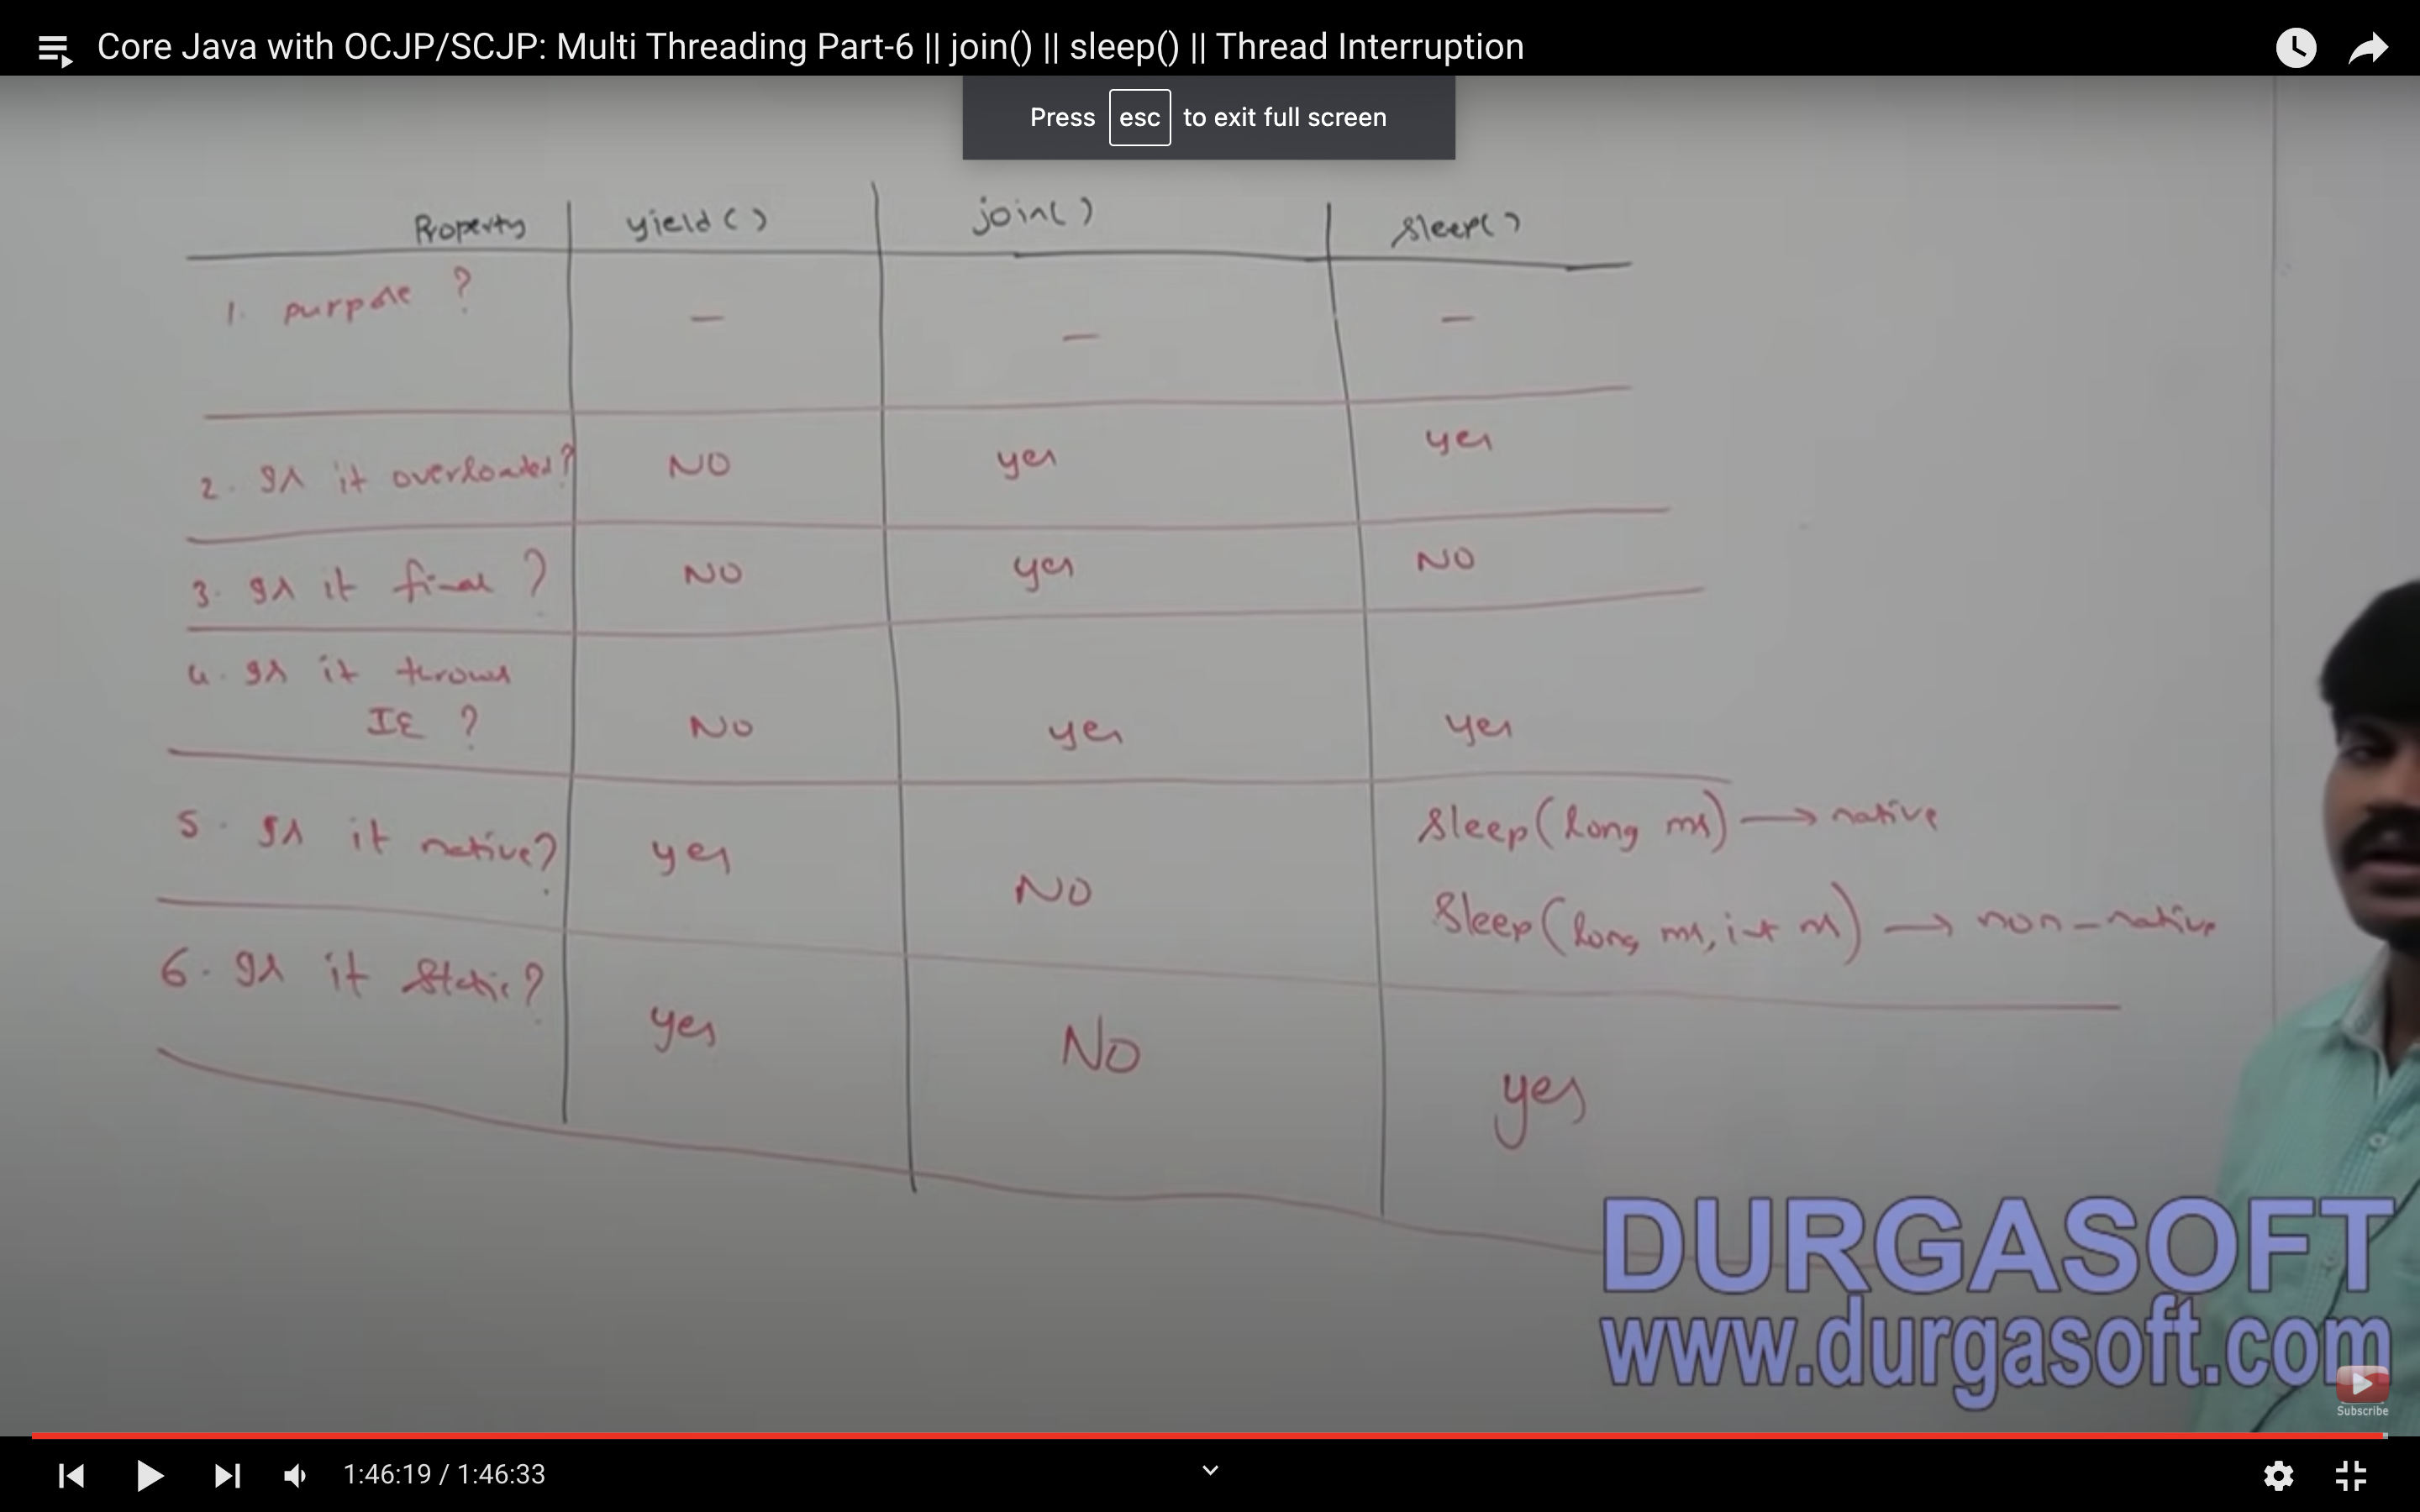 Core Java with OCJP/SCJP: Multi Threading Part-6 || join() || sleep() || Thread Interruption
Press esc to exit full screen
Property yield() join() sleep()
1. purpose ? — — —
2. Is it overloaded? NO yes yes
3. Is it final ? NO yes NO
4. Is it throws
IE ? NO yes yes
5. Is it native? yes NO sleep(long ms) → native
sleep(long ms, int ns) → non-native
6. Is it static? yes No yes
DURGASOFT
www.durgasoft.com
Subscribe
1:46:19 / 1:46:33